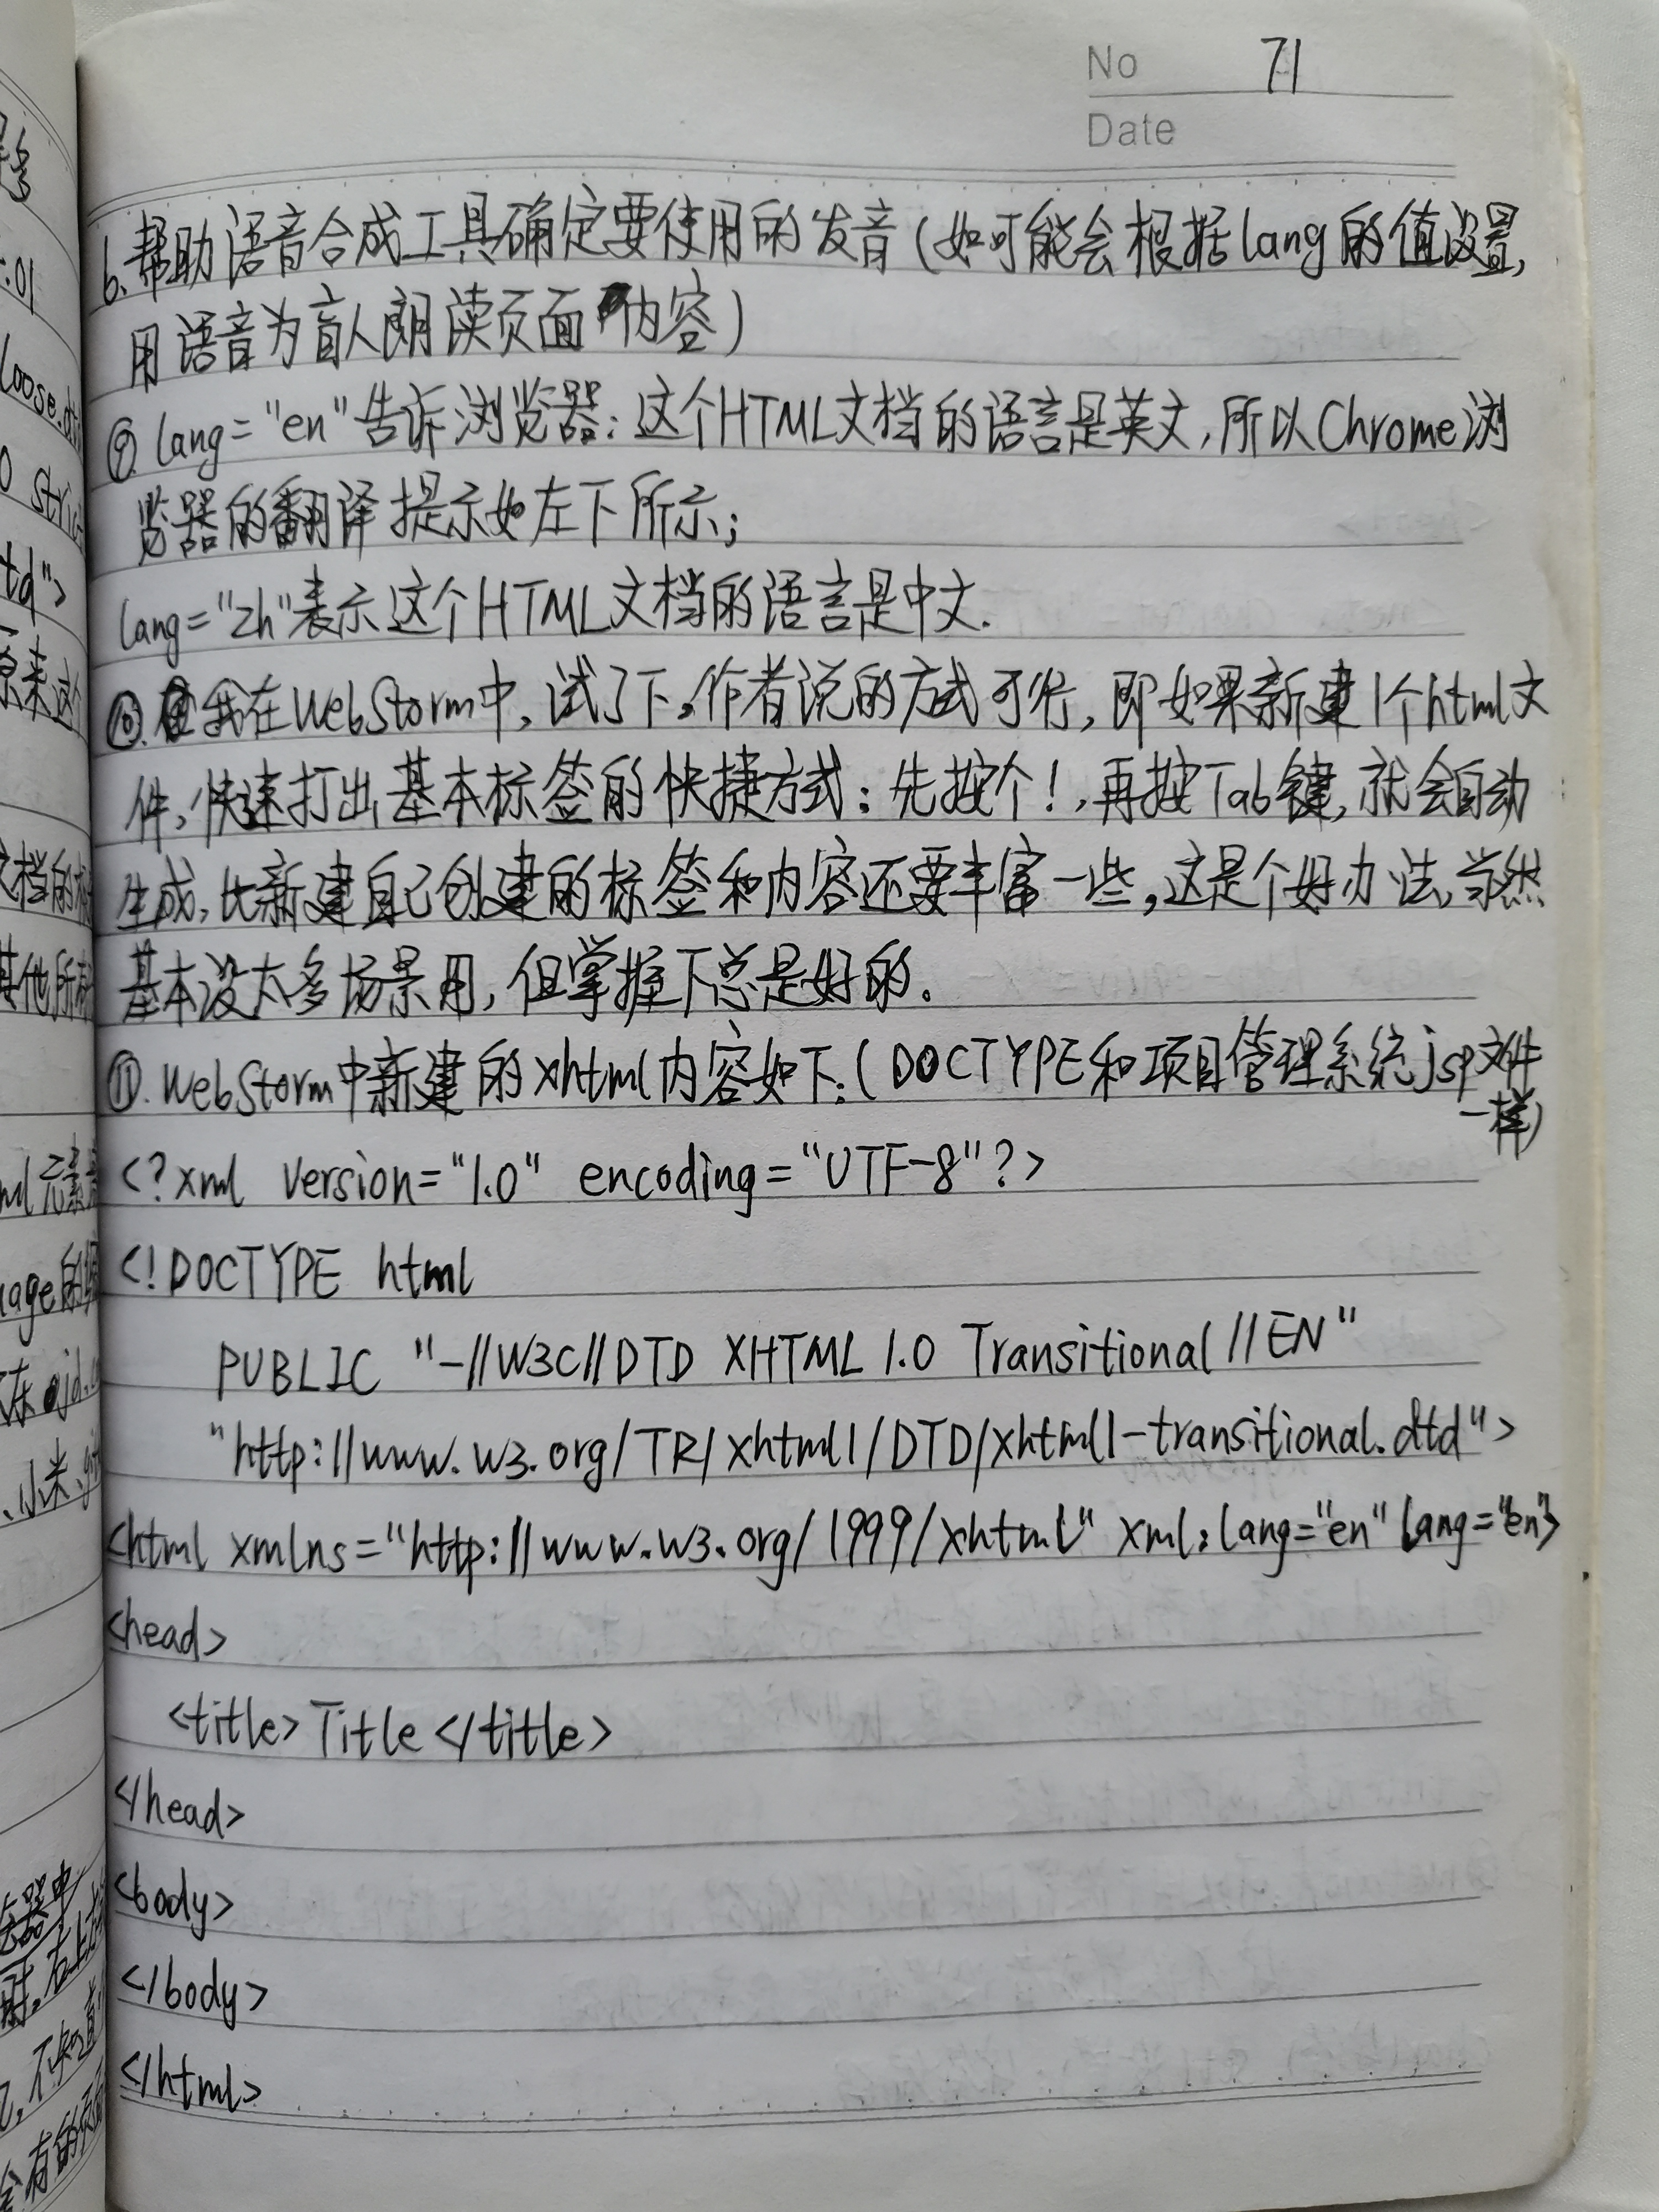 No 71
Date
b.帮助语音合成工具确定要使用的发音(如可能会根据lang的值设置,
用语音为盲人朗读页面内容)
⑨.lang="en"告诉浏览器:这个HTML文档的语言是英文,所以Chrome浏
览器的翻译提示如左下所示;
lang="zh"表示这个HTML文档的语言是中文.
⑩.我在WebStorm中,试了下。作者说的方式可行,即如果新建1个html文
件,快速打出基本标签的快捷方式:先按个!,再按Tab键,就会自动
生成,比新建自己创建的标签和内容还要丰富一些,这是个好办法,当然
基本没太多场景用,但掌握下总是好的。
⑪.WebStorm中新建的xhtml内容如下:(DOCTYPE和项目管理系统jsp文件
一样)
<?xml version="1.0" encoding="UTF-8"?>
<!DOCTYPE html
PUBLIC "-//W3C//DTD XHTML 1.0 Transitional//EN"
"http://www.w3.org/TR/xhtml1/DTD/xhtml1-transitional.dtd">
<html xmlns="http://www.w3.org/1999/xhtml" xml:lang="en" lang="en">
<head>
<title>Title</title>
</head>
<body>
</body>
</html>